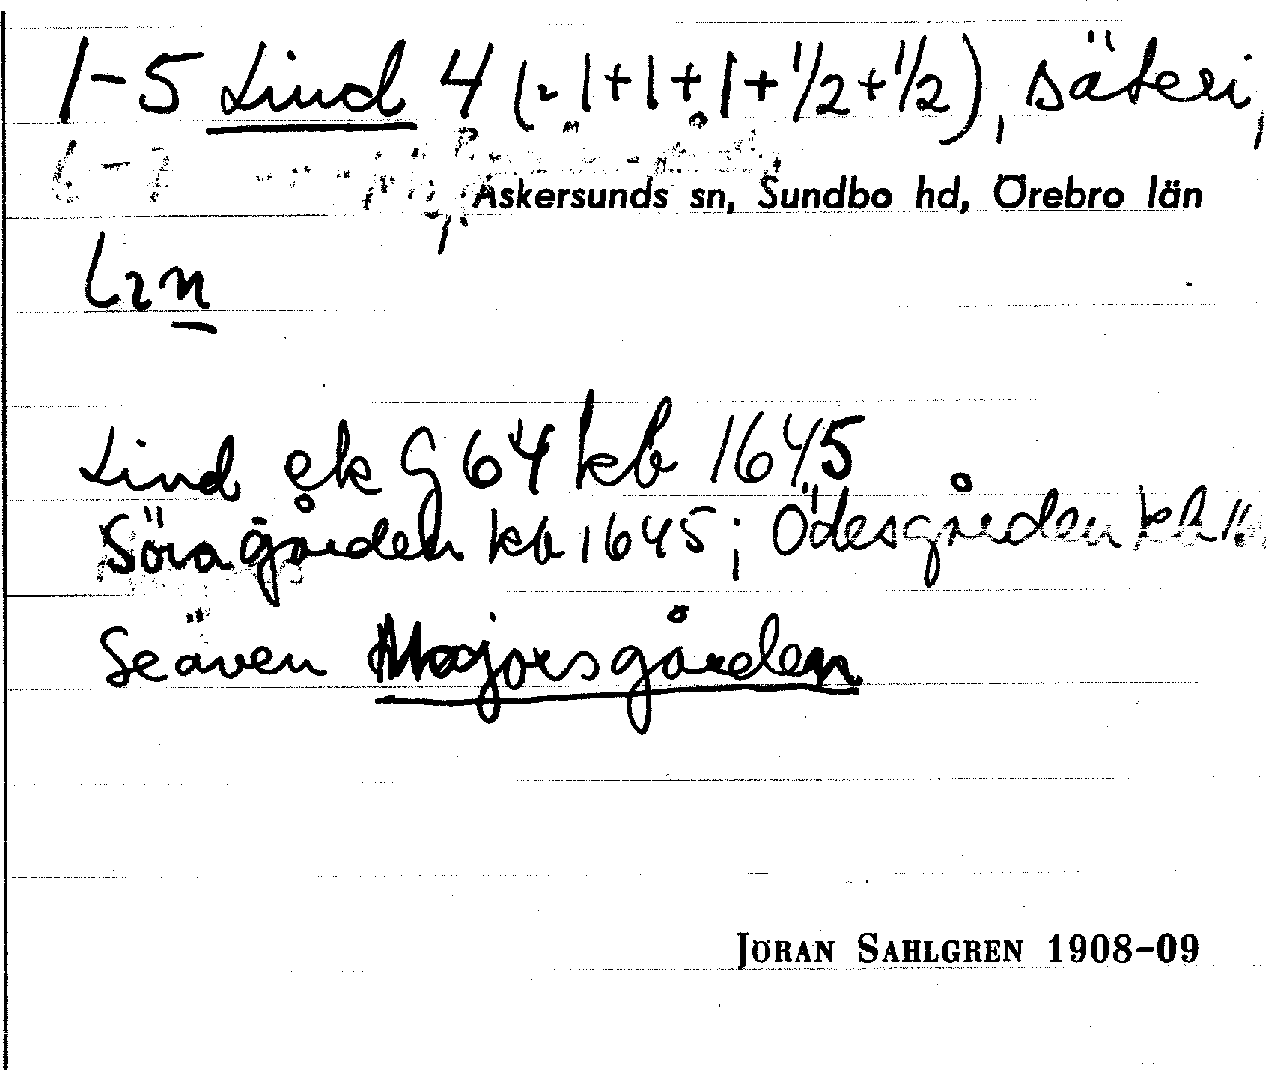 1-5 Lind 4 (= 1+1+1+1/2+1/2), säteri,
6-7
Askersunds sn, Sundbo hd, Örebro län
Lind ek G 64 kb 1645
Söragården kb 1645; Ödesgården kb
Se även Majorsgården
JÖRAN SAHLGREN 1908-09